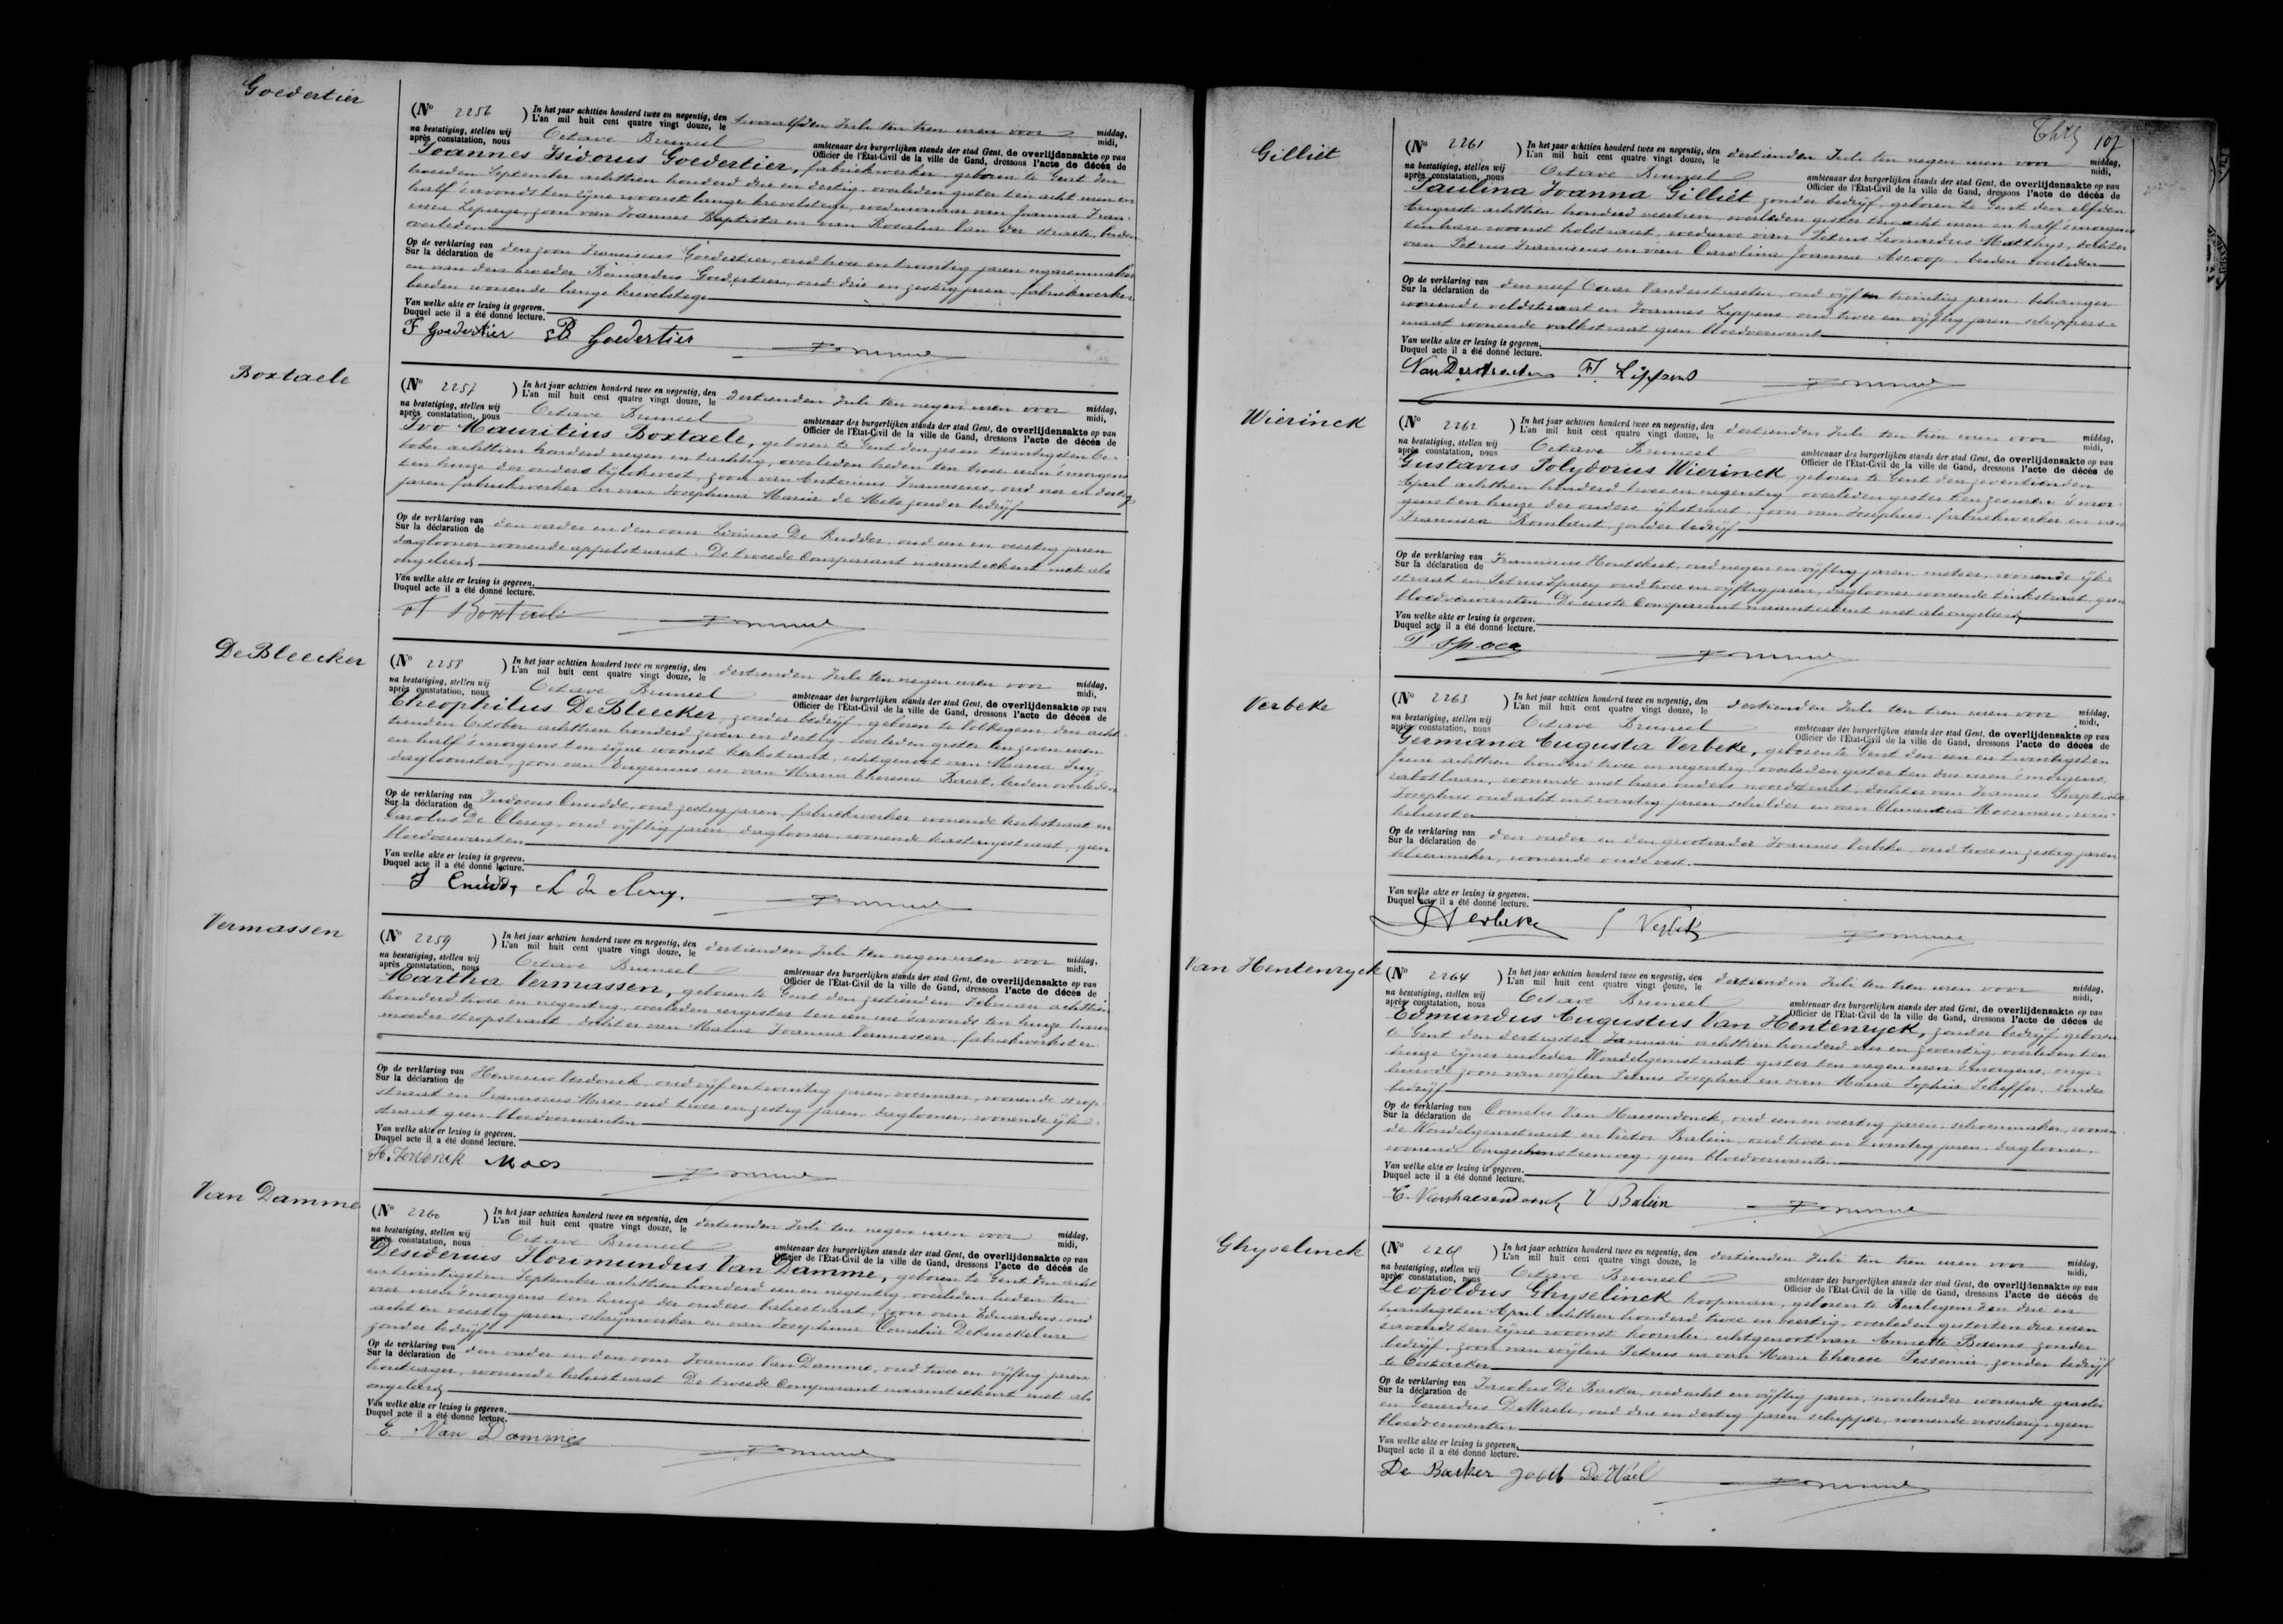 Goedertier
(No 2256 ) In het jaar achttien honderd twee en negentig, den twaalfden Juli ten tien uren voor middag,
L'an mil huit cent quatre vingt douze, le midi,
na bestatiging, stellen wij Octave Bruneel ambtenaar des burgerlijken stands der stad Gent, de overlijdensakte op van
après constatation, nous Officier de l'État-Civil de la ville de Gand, dressons l'acte de décès de
Joannes Isidorus Goedertier, fabriekwerker, geboren te Gent den
tweeden September achttien honderd drie en dertig, overleden gister ten acht uren en
half 's avonds ten zijne woonst lange krevelsteeg, weduwnaar van Joanna Fran-
zoon van Joannes Baptista en van Rosalia Van der straete, beiden
overleden
Op de verklaring van den zoon Franciscus Goedertier, oud twee en twintig jaren
Sur la déclaration de
en van den broeder Bernardus Goedertier, oud drie en zestig jaren, fabriekwerker
beiden wonende lange krevelstege
Van welke akte er lezing is gegeven.
Duquel acte il a été donné lecture.
F Goedertier B Goedertier
Boxtaele
(No 2257 ) In het jaar achttien honderd twee en negentig, den dertienden Juli ten negen uren voor middag,
L'an mil huit cent quatre vingt douze, le midi,
na bestatiging, stellen wij Octave Bruneel ambtenaar des burgerlijken stands der stad Gent, de overlijdensakte op van
après constatation, nous Officier de l'État-Civil de la ville de Gand, dressons l'acte de décès de
Ivo Mauritius Boxtaele, geboren te Gent den zes en twintigsten Oc-
tober achttien honderd negen en tachtig, overleden heden ten twee uren 's morgens
ten huize der ouders bijlokevest, zoon van Antonius Franciscus, oud een en dertig
jaren fabriekwerker en van Josephina Maria de Mets zonder bedrijf
Op de verklaring van den vader en den oom Livinus De Rudder, oud een en veertig jaren
Sur la déclaration de
daglooner wonende appelstraat. De tweede Comparant naamteekent niet als
ongeleerd
Van welke akte er lezing is gegeven.
Duquel acte il a été donné lecture.
A Boxtaele
De Bleecker
(No 2258 ) In het jaar achttien honderd twee en negentig, den dertienden Juli ten negen uren voor middag,
L'an mil huit cent quatre vingt douze, le midi,
na bestatiging, stellen wij Octave Bruneel ambtenaar des burgerlijken stands der stad Gent, de overlijdensakte op van
après constatation, nous Officier de l'État-Civil de la ville de Gand, dressons l'acte de décès de
Theophilus De Bleecker, zonder bedrijf, geboren te Volkegem, den acht-
tienden October achttien honderd zeven en dertig, overleden gister ten zeven uren
en half 's morgens ten zijne woonst kerkstraat, echtgenoot van Maria
dagloonster, zoon van Eugenius en van Maria Theresia Baert, beiden overleden
Op de verklaring van Judocus Cnudde, oud zestig jaren, fabriekwerker wonende kerkstraat en
Sur la déclaration de
Carolus De Clercq, oud vijftig jaren, daglooner, wonende kerstanjestraat, geen
bloedverwanten
Van welke akte er lezing is gegeven.
Duquel acte il a été donné lecture.
J Cnudde de clercq.
Vermassen
(No 2259 ) In het jaar achttien honderd twee en negentig, den dertienden Juli ten negen uren voor middag,
L'an mil huit cent quatre vingt douze, le midi,
na bestatiging, stellen wij Octave Bruneel ambtenaar des burgerlijken stands der stad Gent, de overlijdensakte op van
après constatation, nous Officier de l'État-Civil de la ville de Gand, dressons l'acte de décès de
Martha Vermassen, geboren te Gent den zestienden Februari achttien
honderd twee en negentig, overleden eergister ten een ure 's avonds ten huize harer
moeder stropstraat, dochter van Maria Joanna Vermassen, fabriekwerkster.
Op de verklaring van Henricus Verdonck, oud vijf en twintig jaren, voerman, wonende strop-
Sur la déclaration de
straat en Franciscus Maes oud twee en zestig jaren, daglooner, wonende ijk-
straat geen bloedverwanten
Van welke akte er lezing is gegeven.
Duquel acte il a été donné lecture.
H. Verdonck Maes
Van Damme
(No 2260 ) In het jaar achttien honderd twee en negentig, den dertienden Juli ten negen uren voor middag,
L'an mil huit cent quatre vingt douze, le midi,
na bestatiging, stellen wij Octave Bruneel ambtenaar des burgerlijken stands der stad Gent, de overlijdensakte op van
après constatation, nous Officier de l'État-Civil de la ville de Gand, dressons l'acte de décès de
Desiderius Florimundus Van Damme, geboren te Gent den acht
en twintigsten September achttien honderd een en negentig, overleden heden ten
vier uren 's morgens ten huize der ouders zoon van Eduardus, oud
acht en veertig jaren, schrijnwerker en van Josephina Cornelia Dekeuckelaire
zonder bedrijf
Op de verklaring van den vader en den oom Joannes Van Damme, oud twee en vijftig jaren
Sur la déclaration de
houtzager, wonende De tweede Comparant naamteekent niet als
ongeleerd
Van welke akte er lezing is gegeven.
Duquel acte il a été donné lecture.
E Van Damme
107
Gilliet
(No 2261 ) In het jaar achttien honderd twee en negentig, den dertienden Juli ten negen uren voor middag,
L'an mil huit cent quatre vingt douze, le midi,
na bestatiging, stellen wij Octave Bruneel ambtenaar des burgerlijken stands der stad Gent, de overlijdensakte op van
après constatation, nous Officier de l'État-Civil de la ville de Gand, dressons l'acte de décès de
Paulina Joanna Gilliet zonder bedrijf, geboren te Gent den elfden
Augusti achttien honderd veertien, overleden gister ten acht uren en half 's morgens
ten hare woonst holstraat, weduwe van Petrus Leonardus Matthys, dochter
van Petrus Franciscus en van Carolina Joanna Ascoop, beiden overleden
Op de verklaring van den neef Oscar Vanderstraeten, oud vijf en twintig jaren, behanger
Sur la déclaration de
wonende veldstraat en Joannes Lippens, oud twee en vijftig jaren, schippers-
maat wonende valkstraat geen bloedverwant
Van welke akte er lezing is gegeven.
Duquel acte il a été donné lecture.
VanDerstraeten J. Lippens
Wierinck
(No 2262 ) In het jaar achttien honderd twee en negentig, den dertienden Juli ten tien uren voor middag,
L'an mil huit cent quatre vingt douze, le midi,
na bestatiging, stellen wij Octave Bruneel ambtenaar des burgerlijken stands der stad Gent, de overlijdensakte op van
après constatation, nous Officier de l'État-Civil de la ville de Gand, dressons l'acte de décès de
Gustavus Polydorus Wierinck geboren te Gent den zeventienden
April achttien honderd twee en negentig, overleden gister ten zes uren 's mor-
gens ten huize der ouders ijkstraat, zoon van Josephus, fabriekwerker en van
Francisca Rombaut, zonder bedrijf
Op de verklaring van Franciscus Houtekeet, oud negen en vijftig jaren, metser, wonende ijk-
Sur la déclaration de
straat en Petrus Spaey oud twee en vijftig jaren, daglooner wonende geen
bloedverwanten. De eerste Comparant naamteekent niet als ongeleerd
Van welke akte er lezing is gegeven.
Duquel acte il a été donné lecture.
P Spaey
Verbeke
(No 2263 ) In het jaar achttien honderd twee en negentig, den dertienden Juli ten tien uren voor middag,
L'an mil huit cent quatre vingt douze, le midi,
na bestatiging, stellen wij Octave Bruneel ambtenaar des burgerlijken stands der stad Gent, de overlijdensakte op van
après constatation, nous Officier de l'État-Civil de la ville de Gand, dressons l'acte de décès de
Germana Augusta Verbeke, geboren te Gent den een en twintigsten
Juni achttien honderd twee en negentig, overleden gister ten drie uren 's morgens,
rabotlaan, wonende met hare ouders noordstraat, dochter van Joannes Baptista
Josephus oud acht en twintig jaren, schilder en van Clementia Moerman, win-
kelierster
Op de verklaring van den vader en den grootvader Joannes Verbeke, oud twee en zestig jaren
Sur la déclaration de
kleermaker, wonende oude vest.
Van welke akte er lezing is gegeven.
Duquel acte il a été donné lecture.
Verbeke J Verbeke
Van Hentenryck
(No 2264 ) In het jaar achttien honderd twee en negentig, den dertienden Juli ten tien uren voor middag,
L'an mil huit cent quatre vingt douze, le midi,
na bestatiging, stellen wij Octave Bruneel ambtenaar des burgerlijken stands der stad Gent, de overlijdensakte op van
après constatation, nous Officier de l'État-Civil de la ville de Gand, dressons l'acte de décès de
Edmundus Augustus Van Hentenryck, zonder bedrijf, geboren
te Gent den dertigsten Januari achttien honderd vier en zeventig, overleden ten
huize zijner moeder Wondelgemstraat gister ten negen uren 's morgens, onge-
huwde zoon van wijlen Petrus Josephus en van Maria Sophia Scheffer, zonder
bedrijf
Op de verklaring van Cornelis Van Haesendonck, oud een en veertig jaren, schoenmaker, wonen-
Sur la déclaration de
de Wondelgemstraat en Victor Balein, oud twee en twintig jaren, daglooner,
wonende geen bloedverwanten
Van welke akte er lezing is gegeven.
Duquel acte il a été donné lecture.
C. Vanhaesendonck V Balein
Ghyselinck
(No 2265 ) In het jaar achttien honderd twee en negentig, den dertienden Juli ten tien uren voor middag,
L'an mil huit cent quatre vingt douze, le midi,
na bestatiging, stellen wij Octave Bruneel ambtenaar des burgerlijken stands der stad Gent, de overlijdensakte op van
après constatation, nous Officier de l'État-Civil de la ville de Gand, dressons l'acte de décès de
Leopoldus Ghyselinck koopman, geboren te den drie en
twintigsten April achttien honderd twee en veertig, overleden gister ten drie uren
's avonds ten zijne woonst koornlei, echtgenoot van Annette Basens zonder
bedrijf, zoon van wijlen Petrus en van Maria Therese Pessemier, zonder bedrijf
te Oostacker
Op de verklaring van Jacobus De Backer, oud acht en vijftig jaren, wonende
Sur la déclaration de
en Gerardus DeWaele, oud drie en dertig jaren schipper, wonende visscherij, geen
bloedverwanten
Van welke akte er lezing is gegeven.
Duquel acte il a été donné lecture.
De Backer Jacob De Wael